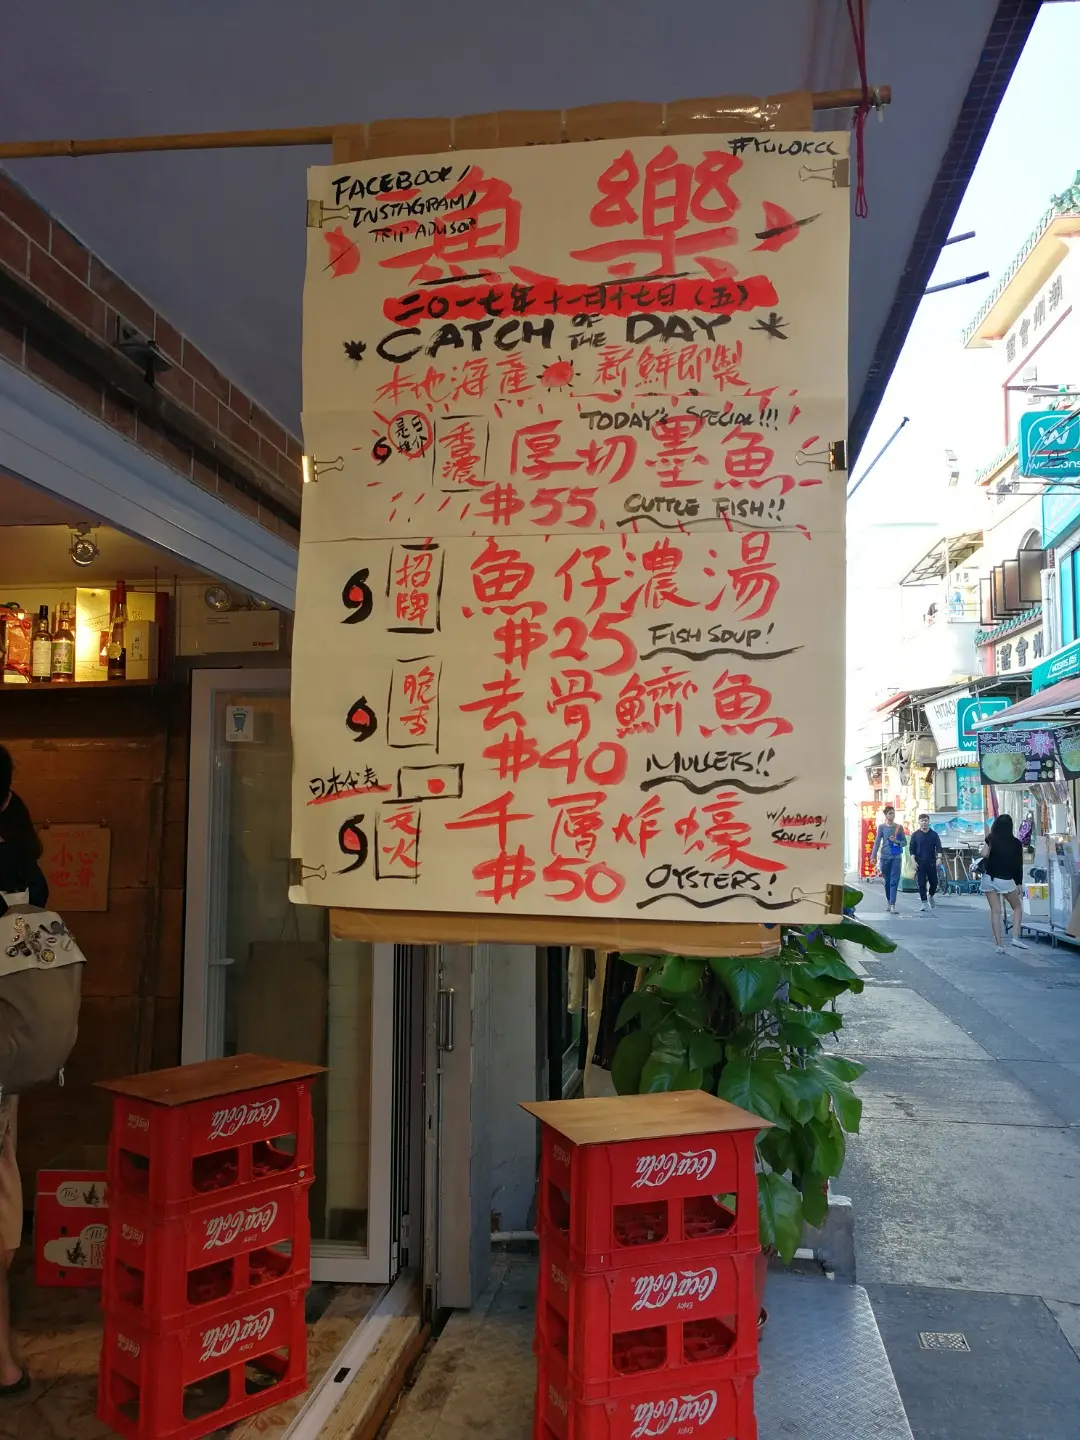 #YULOKCC
FACEBOOK/
INSTAGRAM/
TRIP ADVISOR
漁樂
二〇一七年十一月十七日(五)
CATCH OF THE DAY
本地海產 新鮮即製
TODAY'S SPECIAL!!!
是日推介
香濃
厚切墨魚
$55
CUTTLE FISH!!
招牌
魚仔濃湯
$25
FISH SOUP!
脆香
去骨鱭魚
$40
MULLETS!!
日本代表
千層炸蠔
W/WASABI
SAUCE!!
$50
OYSTERS!
小心
地滑
Coca-Cola
Coca-Cola
Coca-Cola
Coca-Cola
Coca-Cola
Coca-Cola
Enjoy
HITACHI
潮州會館